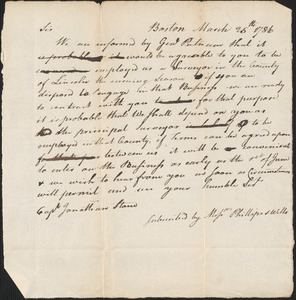 Sir Boston March 25th 1786
We are informed by Genl Putnam that it
would be agreeable to you to be
employed as a Surveyor in the County
of Lincoln the ensuing Season if you are
disposed to engage in that Business we are ready
to contract with you for that purpose
it is probable that We shall depend on you as
the principal Surveyor to be
employed in that County, if terms can be agreed upon
between us it will be convenient
to enter on the Business as early as the 1st of June
& we wish to hear from you as soon as Circumstances
will permit and are your Humble Sets
Capt Jonathan Stone
Submitted by Messrs Phillips & Wells